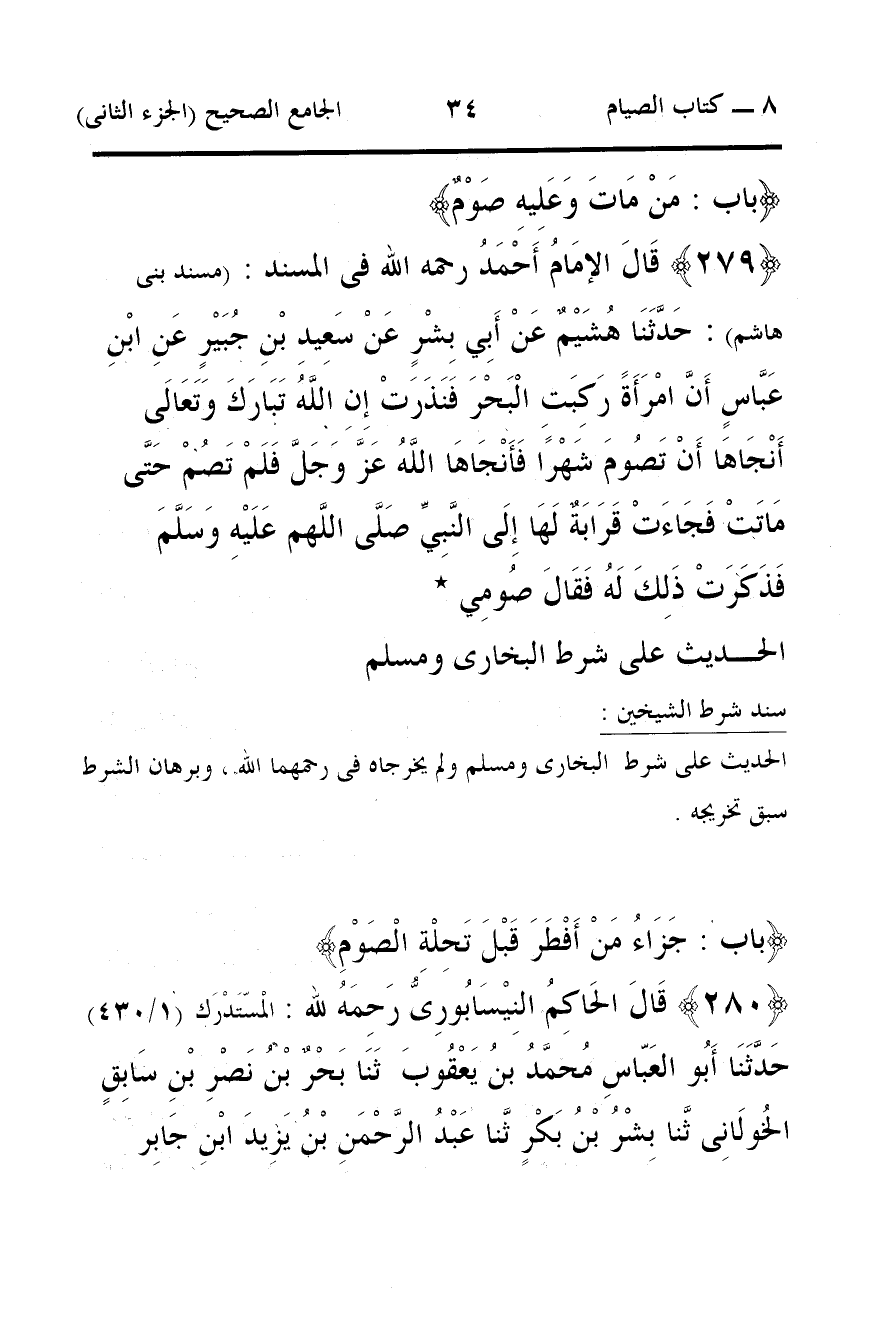 ٨ ــ كتاب الصيام ٣٤ الجامع الصحيح (الجزء الثانى)
﴿باب : مَنْ مَاتَ وَعَلِيهِ صَوْمٌ﴾
﴿٢٧٩﴾ قَالَ الإِمَامُ أَحْمَدُ رحمه الله فى المسند : (مسند بنى
هاشم) : حَدَّثَنَا هُشَيْمٌ عَنْ أَبِي بِشْرٍ عَنْ سَعِيدِ بْنِ جُبَيْرٍ عَنِ ابْنِ
عَبَّاسٍ أَنَّ امْرَأَةً رَكِبَتِ الْبَحْرَ فَنَذَرَتْ إِنِ اللَّهُ تَبَارَكَ وَتَعَالَى
أَنْجَاهَا أَنْ تَصُومَ شَهْرًا فَأَنْجَاهَا اللَّهُ عَزَّ وَجَلَّ فَلَمْ تَصُمْ حَتَّى
مَاتَتْ فَجَاءَتْ قَرَابَةٌ لَهَا إِلَى النَّبِيِّ صَلَّى اللَّهم عَلَيْهِ وَسَلَّمَ
فَذَكَرَتْ ذَلِكَ لَهُ فَقَالَ صُومِي *
الحــديث على شرط البخارى ومسلم
سند شرط الشيخين :
الحديث على شرط البخارى ومسلم ولم يخرجاه فى رحمهما الله ، وبرهان الشرط
سبق تخريجه .
﴿باب : جَزَاءُ مَنْ أَفْطَرَ قَبْلَ تَحِلْةِ الْصَوْمِ﴾
﴿٢٨٠﴾ قَالَ الحَاكِمُ النِيْسَابُورىُّ رَحِمَهُ لله : المْسّتدْرَك (٤٣٠/١)
حَدَّثَنَا أَبُو العَبَّاسِ مُحَمَّدُ بنُ يَعْقُوبَ ثَنَا بَحْرٌ بْنُ نَصْرِ بْنِ سَابِقٍ
الخُولَانِى ثَنا بِشْرُ بْنُ بَكْرٍ ثَنا عَبْدُ الرَّحْمَنِ بْنُ يَزِيدَ ابْنِ جَابِرٍ